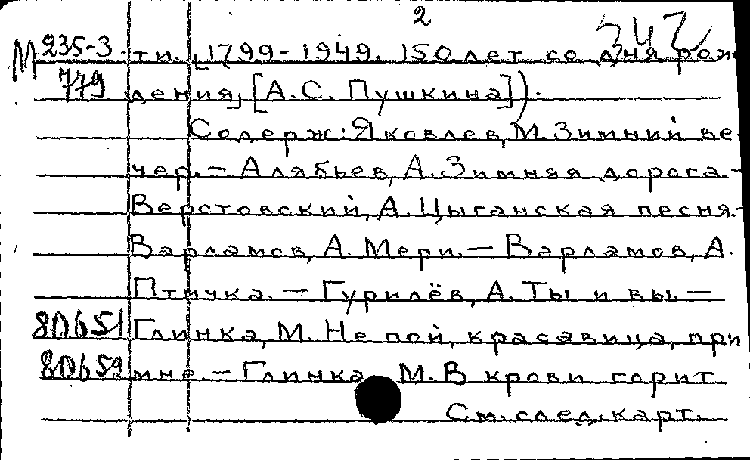 2
М 235-3 ти. [1799-1949. 150 лет со дня рож
779 дения, [А.С. Пушкина]).
Содерж: Яковлев, М. Зимний ве
чер. — Алябьев, А. Зимняя дорога. —
Верстовский, А. Цыганская песня. —
Варламов, А. Мери. — Варламов, А.
Птичка. — Гурилёв, А. Ты и вы. —
80651 Глинка, М. Не пой, красавица, при
80652 мне. — Глинка М. В крови горит
См. след. карт.